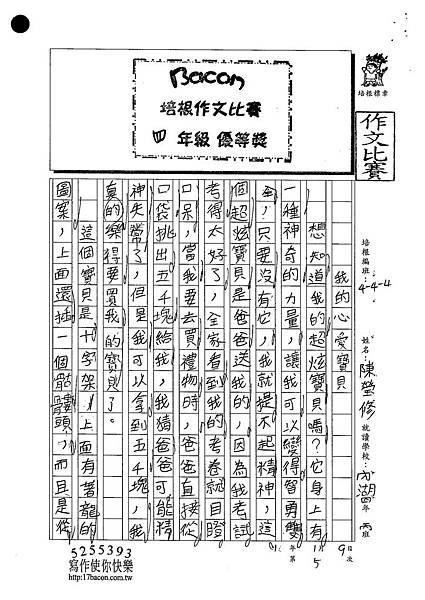 Bacon
培根作文比賽
四 年級 優等獎
培根標章
作文比賽
培根編班：4-4-4
姓名：陳瑩修
就讀學校：內湖 四年 丙班
我的心愛寶貝
想知道我的超炫寶貝嗎？它身上有
一種神奇的力量，讓我可以變得智勇雙
全！只要沒有它，我就提不起精神，這
個超炫寶貝是爸爸送我的，因為我考試
考得太好了，全家看到我的考卷就目瞪
口呆，當我要去買禮物時，爸爸直接從
口袋挑出五千塊給我，我猜爸爸可能精
神失常了，但是我可以拿到五千塊，我
真的樂得要買我的寶貝了。
這個寶貝是十字架，上面有著龍的
圖案，上面還插一個骷髏頭，而且是從
年 第 次 9 日
5
5255393
寫作使你快樂
http://17bacon.com.tw